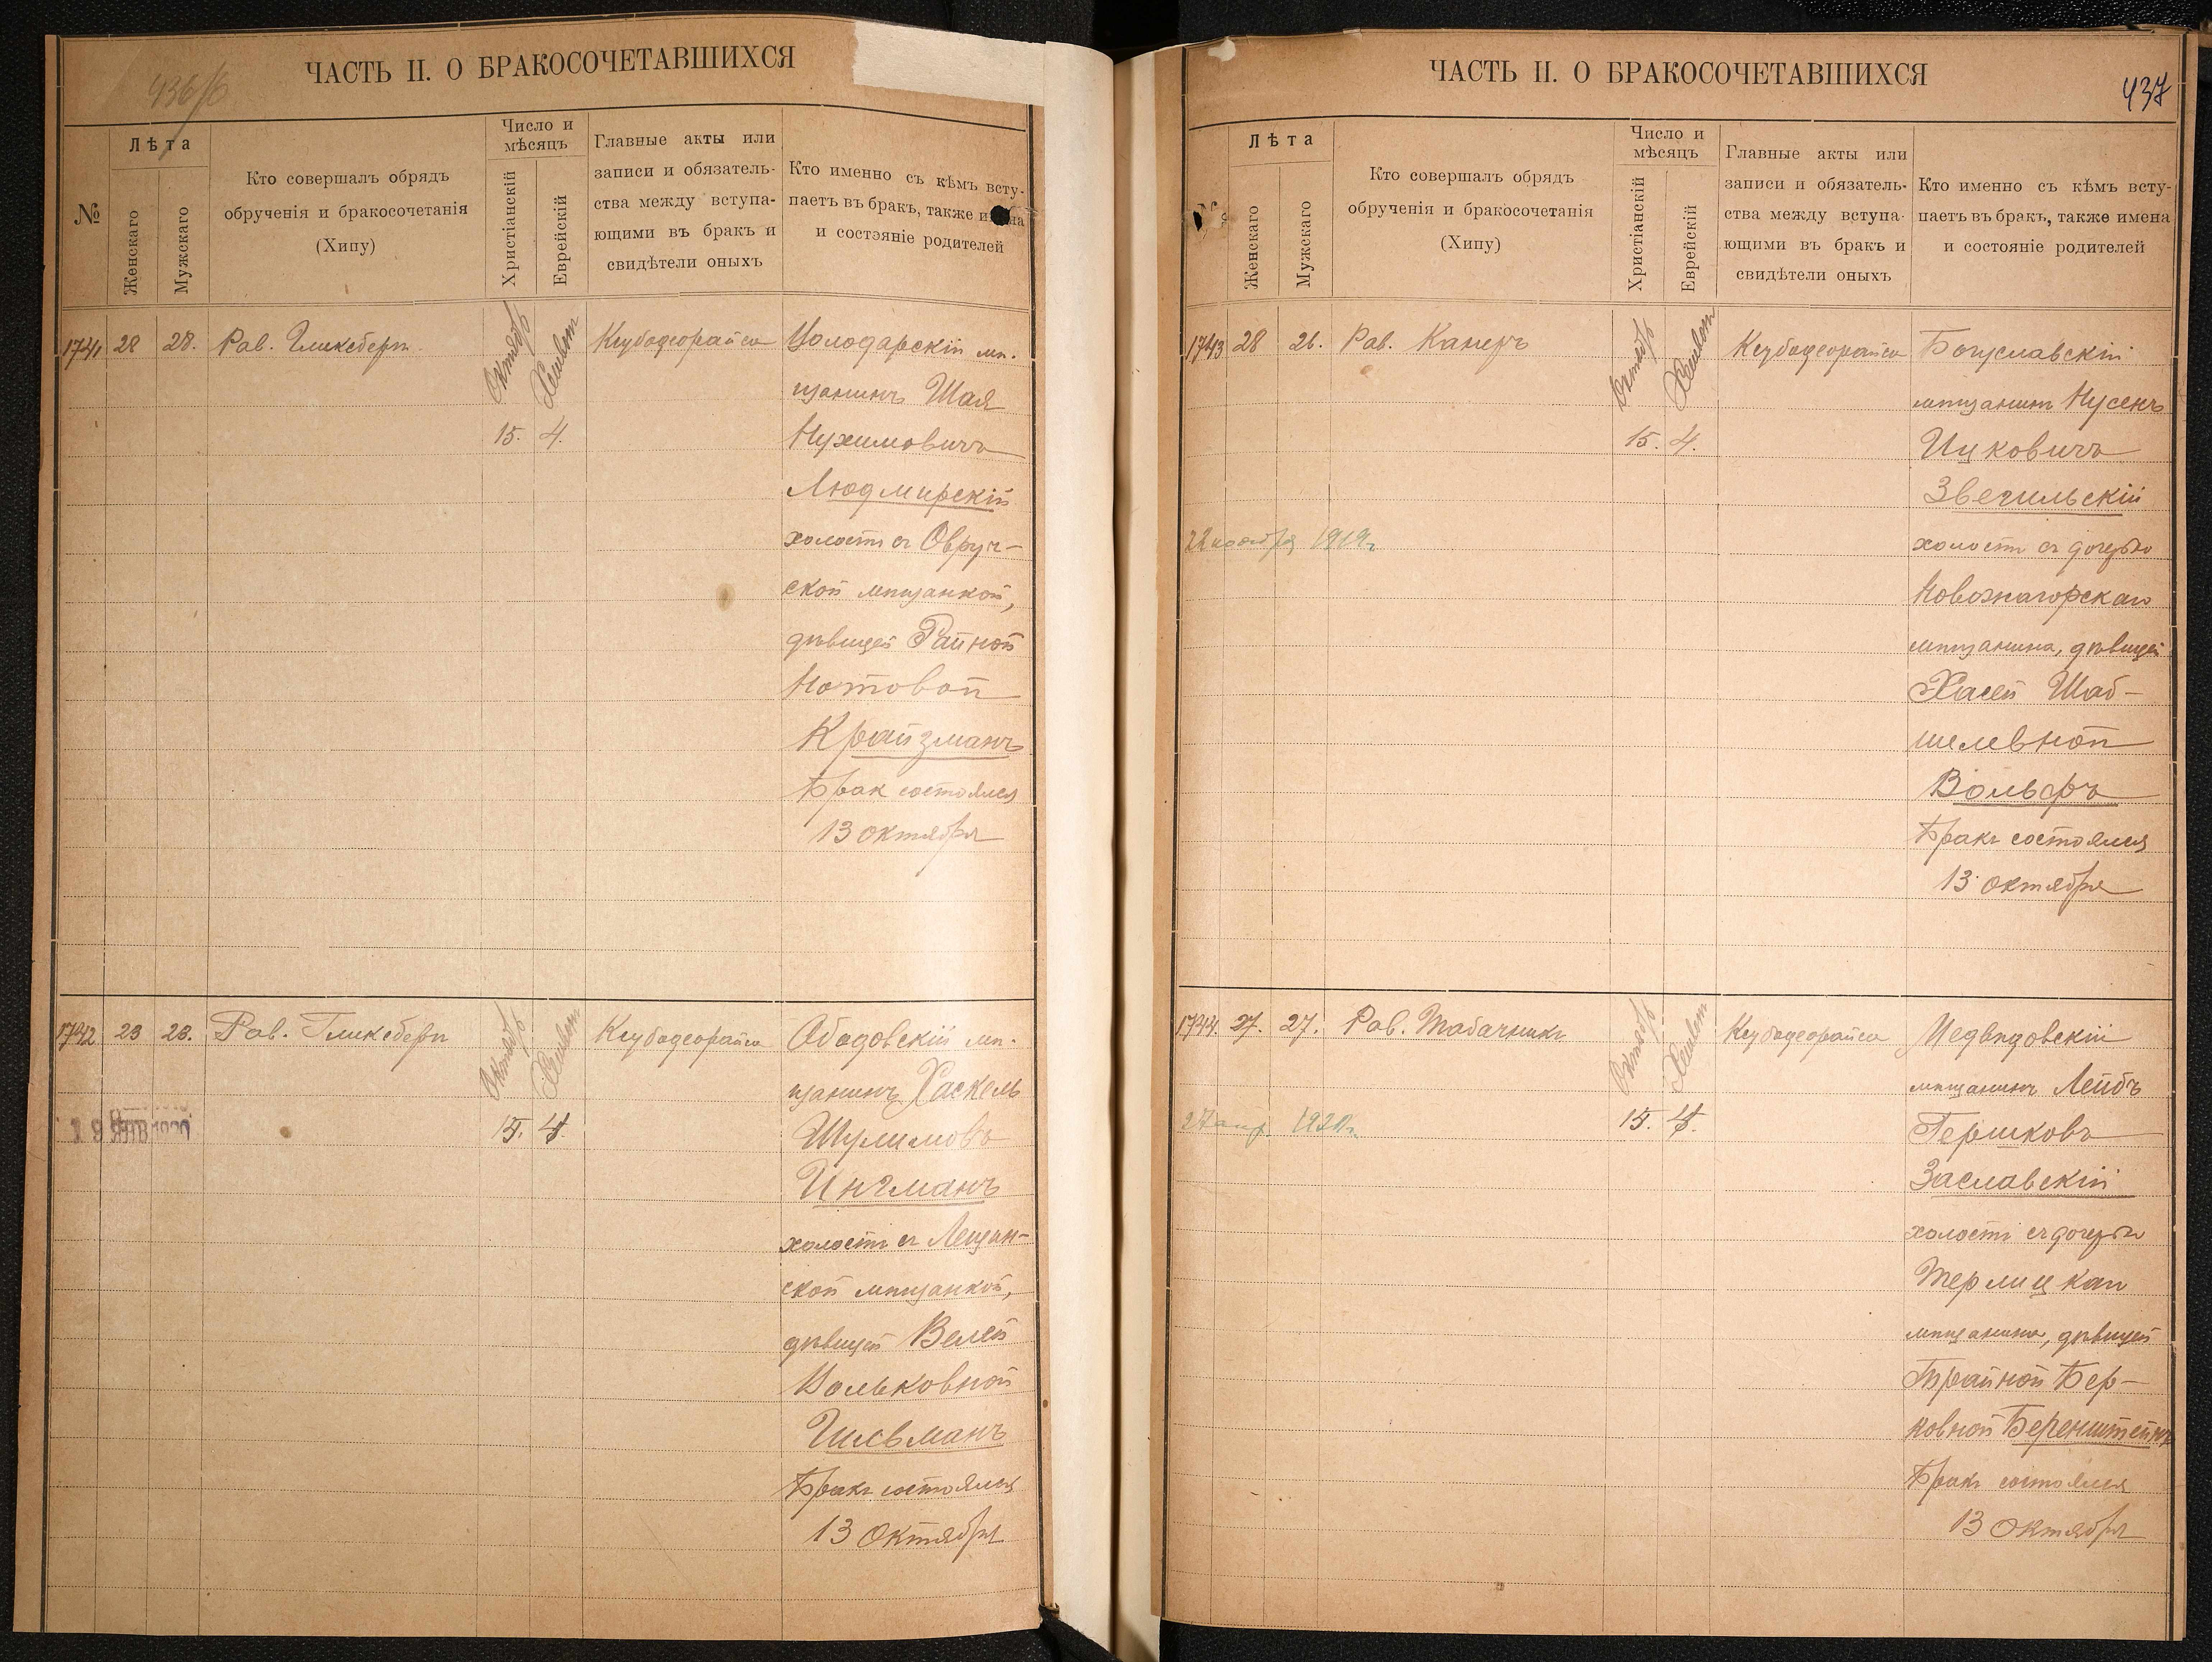 436/б
ЧАСТЬ II. О БРАКОСОЧЕТАВШИХСЯ
№
Лѣта
Женскаго
Мужскаго
Кто совершалъ обрядъ
обрученія и бракосочетанія
(Хипу)
Число и
мѣсяцъ
Христіанскій
Еврейскій
Главные акты или
записи и обязатель-
ства между вступа-
ющими въ бракъ и
свидѣтели оныхъ
Кто именно съ кѣмъ всту-
паетъ въ бракъ, также имена
и состояніе родителей
1741 28 28. Рав. Гликсберг Октябрь Хешвон Ксубодеорайса Володарскій мѣ-
щанинъ Шая
15. 4. Нухимовичъ
Людмирскій
холост съ Овруч-
ской мѣщанкой,
дѣвицей Райной
Нотовой
Крайзманъ
Брак состоялся
13 октября
1742 23 23. Рав. Гликсберг Октябрь Хешвон Ксубодеорайса Ободовскій мѣ-
щанинъ Хаскель
19 ЯНВ 1920 15. 4. Шулимовъ
Ингманъ
холостъ съ Лещин-
ской мѣщанкой,
дѣвицей Велей
Вольковной
Гильманъ
Бракъ состоялся
13 Октября
ЧАСТЬ II. О БРАКОСОЧЕТАВШИХСЯ
437
Лѣта
Женскаго
Мужскаго
Кто совершалъ обрядъ
обрученія и бракосочетанія
(Хипу)
Число и
мѣсяцъ
Христіанскій
Еврейскій
Главные акты или
записи и обязатель-
ства между вступа-
ющими въ бракъ и
свидѣтели оныхъ
Кто именно съ кѣмъ всту-
паетъ въ бракъ, также имена
и состояніе родителей
1743 28 26. Рав. Канеръ Октябрь Хешвон Ксубодеорайса Богуславскій
мѣщанинъ Нусенъ
15. 4. Ицковичъ
Звегильскій
22 ноября 1919г. холостъ съ дочерью
мѣщанина, дѣвицей
Хасей Шаб-
шелевной
Вольфъ
Бракъ состоялся
13 октября
1744. 27. 27. Рав. Табачникъ Октябрь Хешвон Ксубодеорайса Медвѣдовскій
мѣщанинъ Лейбъ
27 апр. 15. 4. Гершковъ
Заславскій
холостъ съ дочерью
Терлицкаго
мѣщанина, дѣвицей
Брайной Бер-
ковной Беренштейнъ
Бракъ состоялся
13 Октября